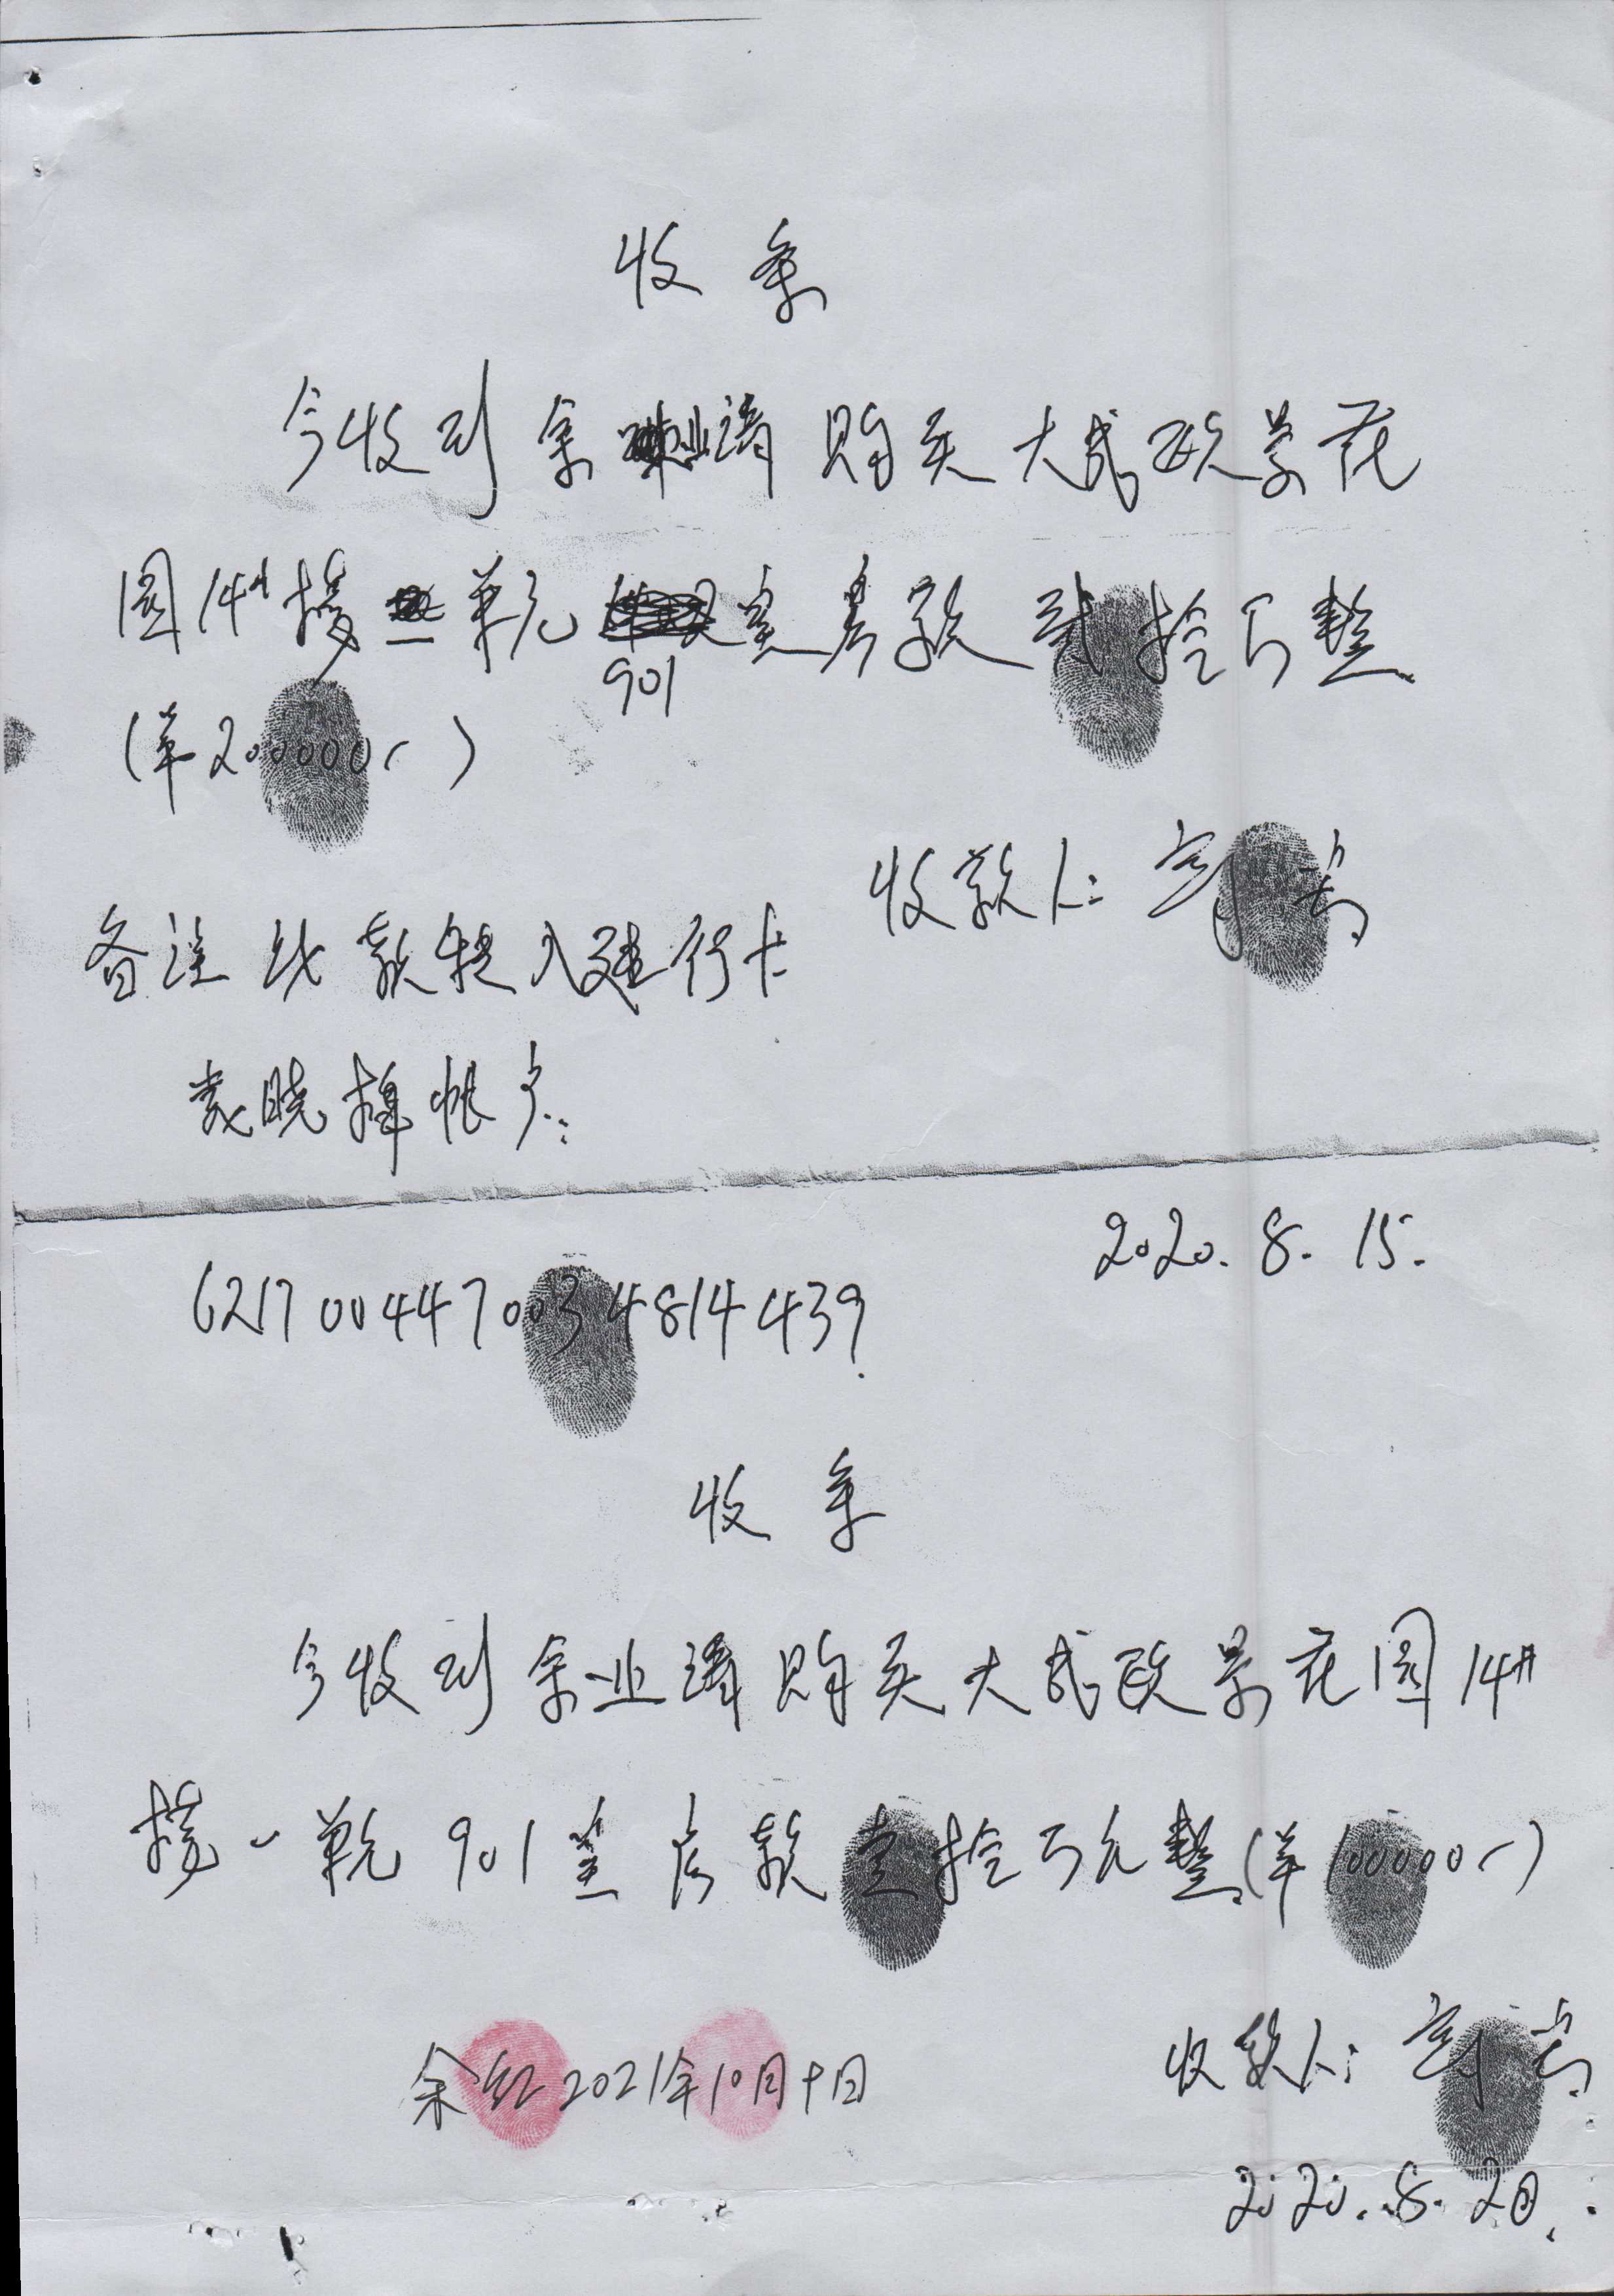 收条
今收到余业涛购买大武政景花
园14#楼一单元901室房款贰拾万整
(羊200000.-)
收款人:
备注 此款转入建行卡
袁晓辉帐户:
2020.8.15.
6217004470034814439.
收条
今收到余业涛购买大武政景花园14#
楼一单元901室房款壹拾万元整(羊100000.-)
收款人:
余红2021年10月10日
2020.8.20.